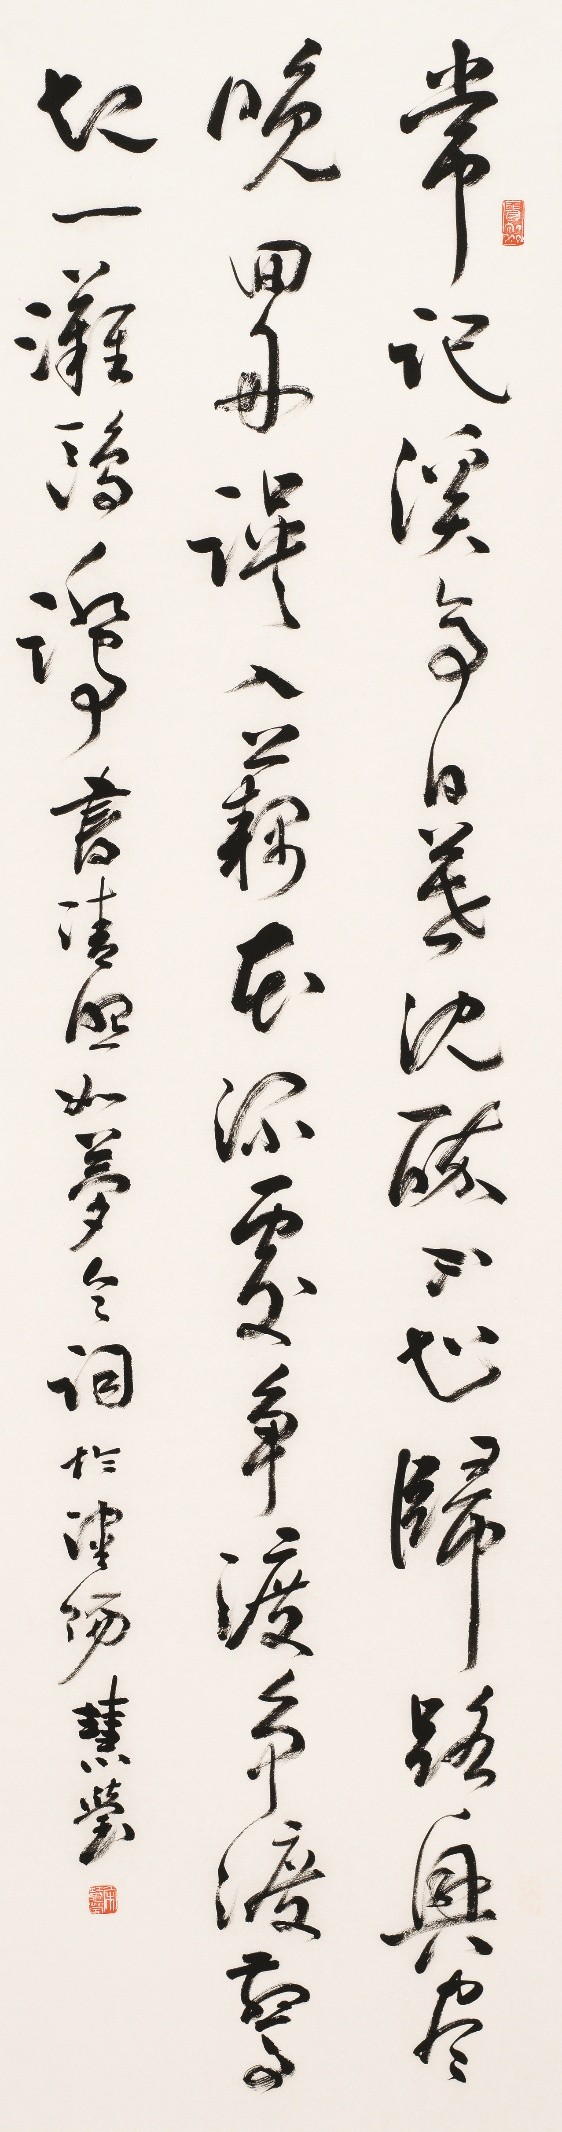 常記溪亭日暮沈醉不知歸路興盡
晚回舟誤入藕花深處爭渡爭渡驚
起一灘鷗鷺 書清照如夢令詞於陽 慧瑩